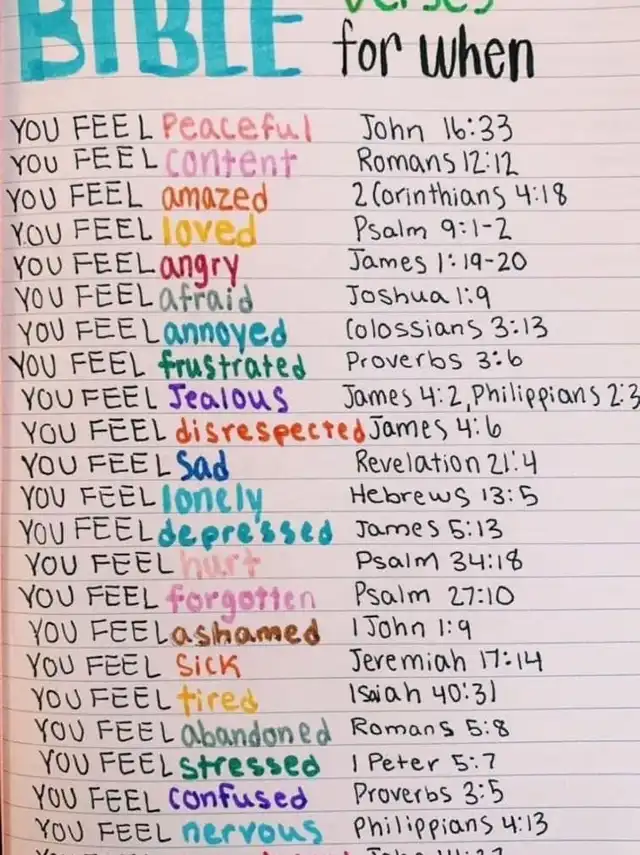 BIBLE verses
for when
YOU FEEL Peaceful John 16:33
YOU FEEL content Romans 12:12
YOU FEEL amazed 2 Corinthians 4:18
YOU FEEL loved Psalm 9:1-2
YOU FEEL angry James 1:19-20
YOU FEEL afraid Joshua 1:9
YOU FEEL annoyed Colossians 3:13
YOU FEEL frustrated Proverbs 3:6
YOU FEEL Jealous James 4:2, Philippians 2:3
YOU FEEL disrespected James 4:6
YOU FEEL Sad Revelation 21:4
YOU FEEL lonely Hebrews 13:5
YOU FEEL depressed James 5:13
YOU FEEL hurt Psalm 34:18
YOU FEEL forgotten Psalm 27:10
YOU FEEL ashamed 1 John 1:9
YOU FEEL Sick Jeremiah 17:14
YOU FEEL tired Isaiah 40:31
YOU FEEL abandoned Romans 5:8
YOU FEEL stressed 1 Peter 5:7
YOU FEEL confused Proverbs 3:5
YOU FEEL nervous Philippians 4:13